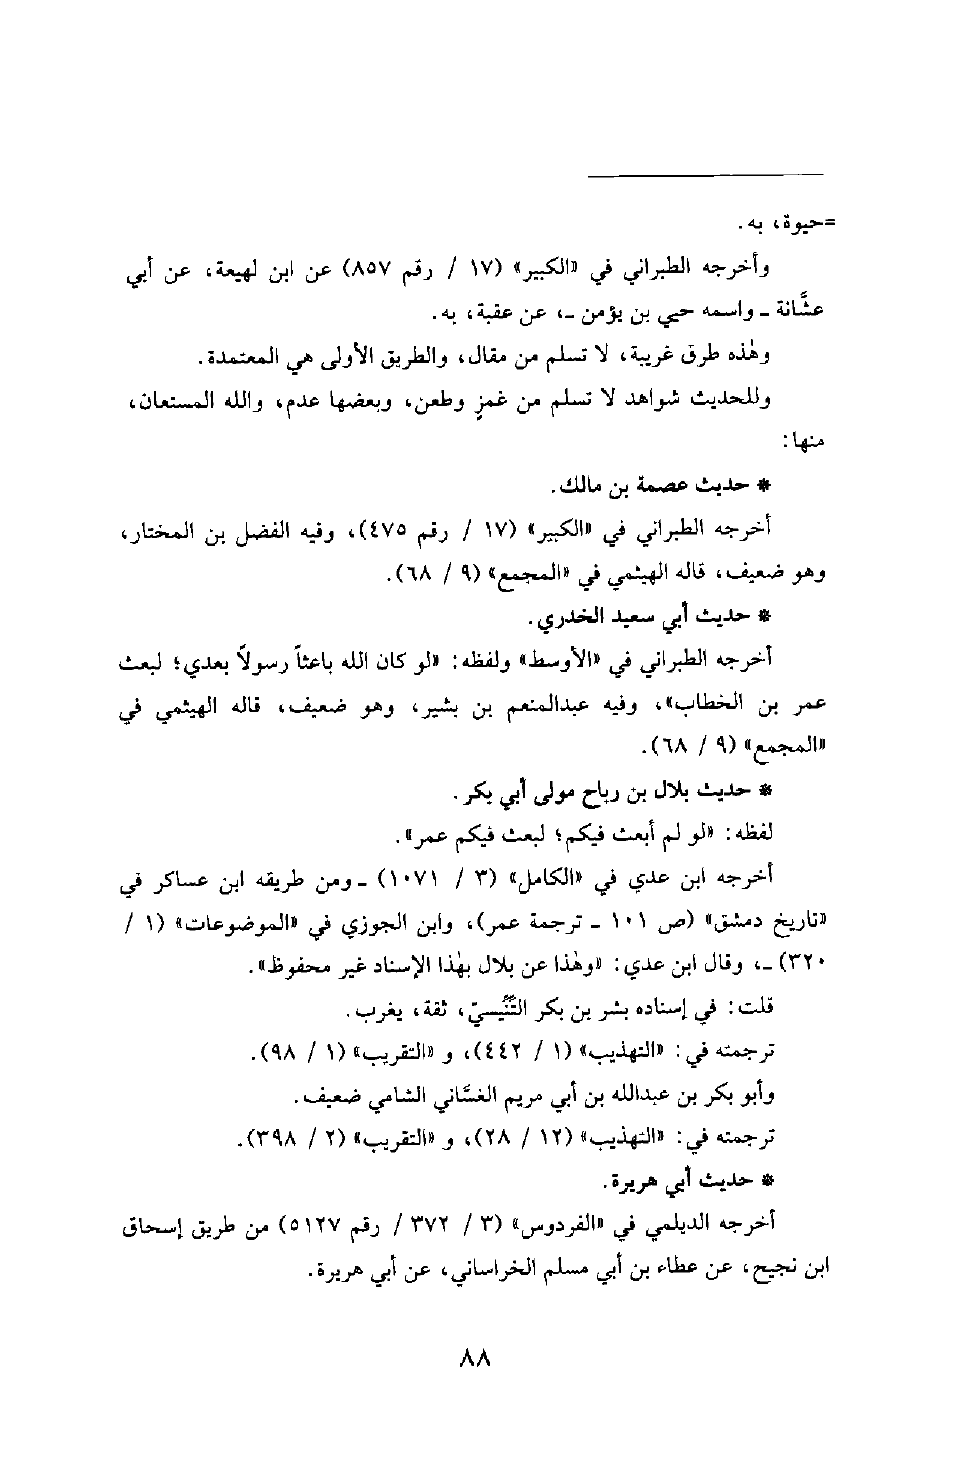 =حيوة، به.
وأخرجه الطبراني في «الكبير» (١٧ / رقم ٨٥٧) عن ابن لهيعة، عن أبي
عشَّانة ـ واسمه حيي بن يؤمن ـ، عن عقبة، به.
وهٰذه طرق غريبة، لا تسلم من مقال، والطريق الأولى هي المعتمدة.
وللحديث شواهد لا تسلم من غمزٍ وطعن، وبعضها عدم، والله المستعان،
منها:
* حديث عصمة بن مالك.
أخرجه الطبراني في «الكبير» (١٧ / رقم ٤٧٥)، وفيه الفضل بن المختار،
وهو ضعيف، قاله الهيثمي في «المجمع» (٩ / ٦٨).
* حديث أبي سعيد الخدري.
أخرجه الطبراني في «الأوسط» ولفظه: «لو كان الله باعثاً رسولاً بعدي؛ لبعث
عمر بن الخطاب»، وفيه عبدالمنعم بن بشير، وهو ضعيف، قاله الهيثمي في
«المجمع» (٩ / ٦٨).
* حديث بلال بن رباح مولى أبي بكر.
لفظه: «لو لم أبعث فيكم؛ لبعث فيكم عمر».
أخرجه ابن عدي في «الكامل» (٣ / ١٠٧١) ـ ومن طريقه ابن عساكر في
«تاريخ دمشق» (ص ١٠١ ـ ترجمة عمر)، وابن الجوزي في «الموضوعات» (١ /
٣٢٠) ـ، وقال ابن عدي: «وهٰذا عن بلال بهٰذا الإسناد غير محفوظ».
قلت: في إسناده بشر بن بكر التِّنِّيسيّ، ثقة، يغرب.
ترجمته في: «التهذيب» (١ / ٤٤٢)، و «التقريب» (١ / ٩٨).
وأبو بكر بن عبدالله بن أبي مريم الغسَّاني الشامي ضعيف.
ترجمته في: «التهذيب» (١٢ / ٢٨)، و «التقريب» (٢ / ٣٩٨).
* حديث أبي هريرة.
أخرجه الديلمي في «الفردوس» (٣ / ٣٧٢ / رقم ٥١٢٧) من طريق إسحاق
ابن نجيح، عن عطاء بن أبي مسلم الخراساني، عن أبي هريرة.
٨٨